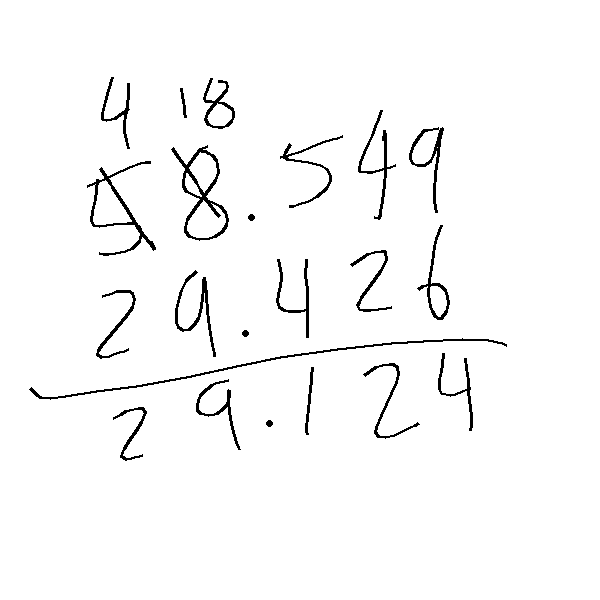 4 18
58.549
29.426
29.124